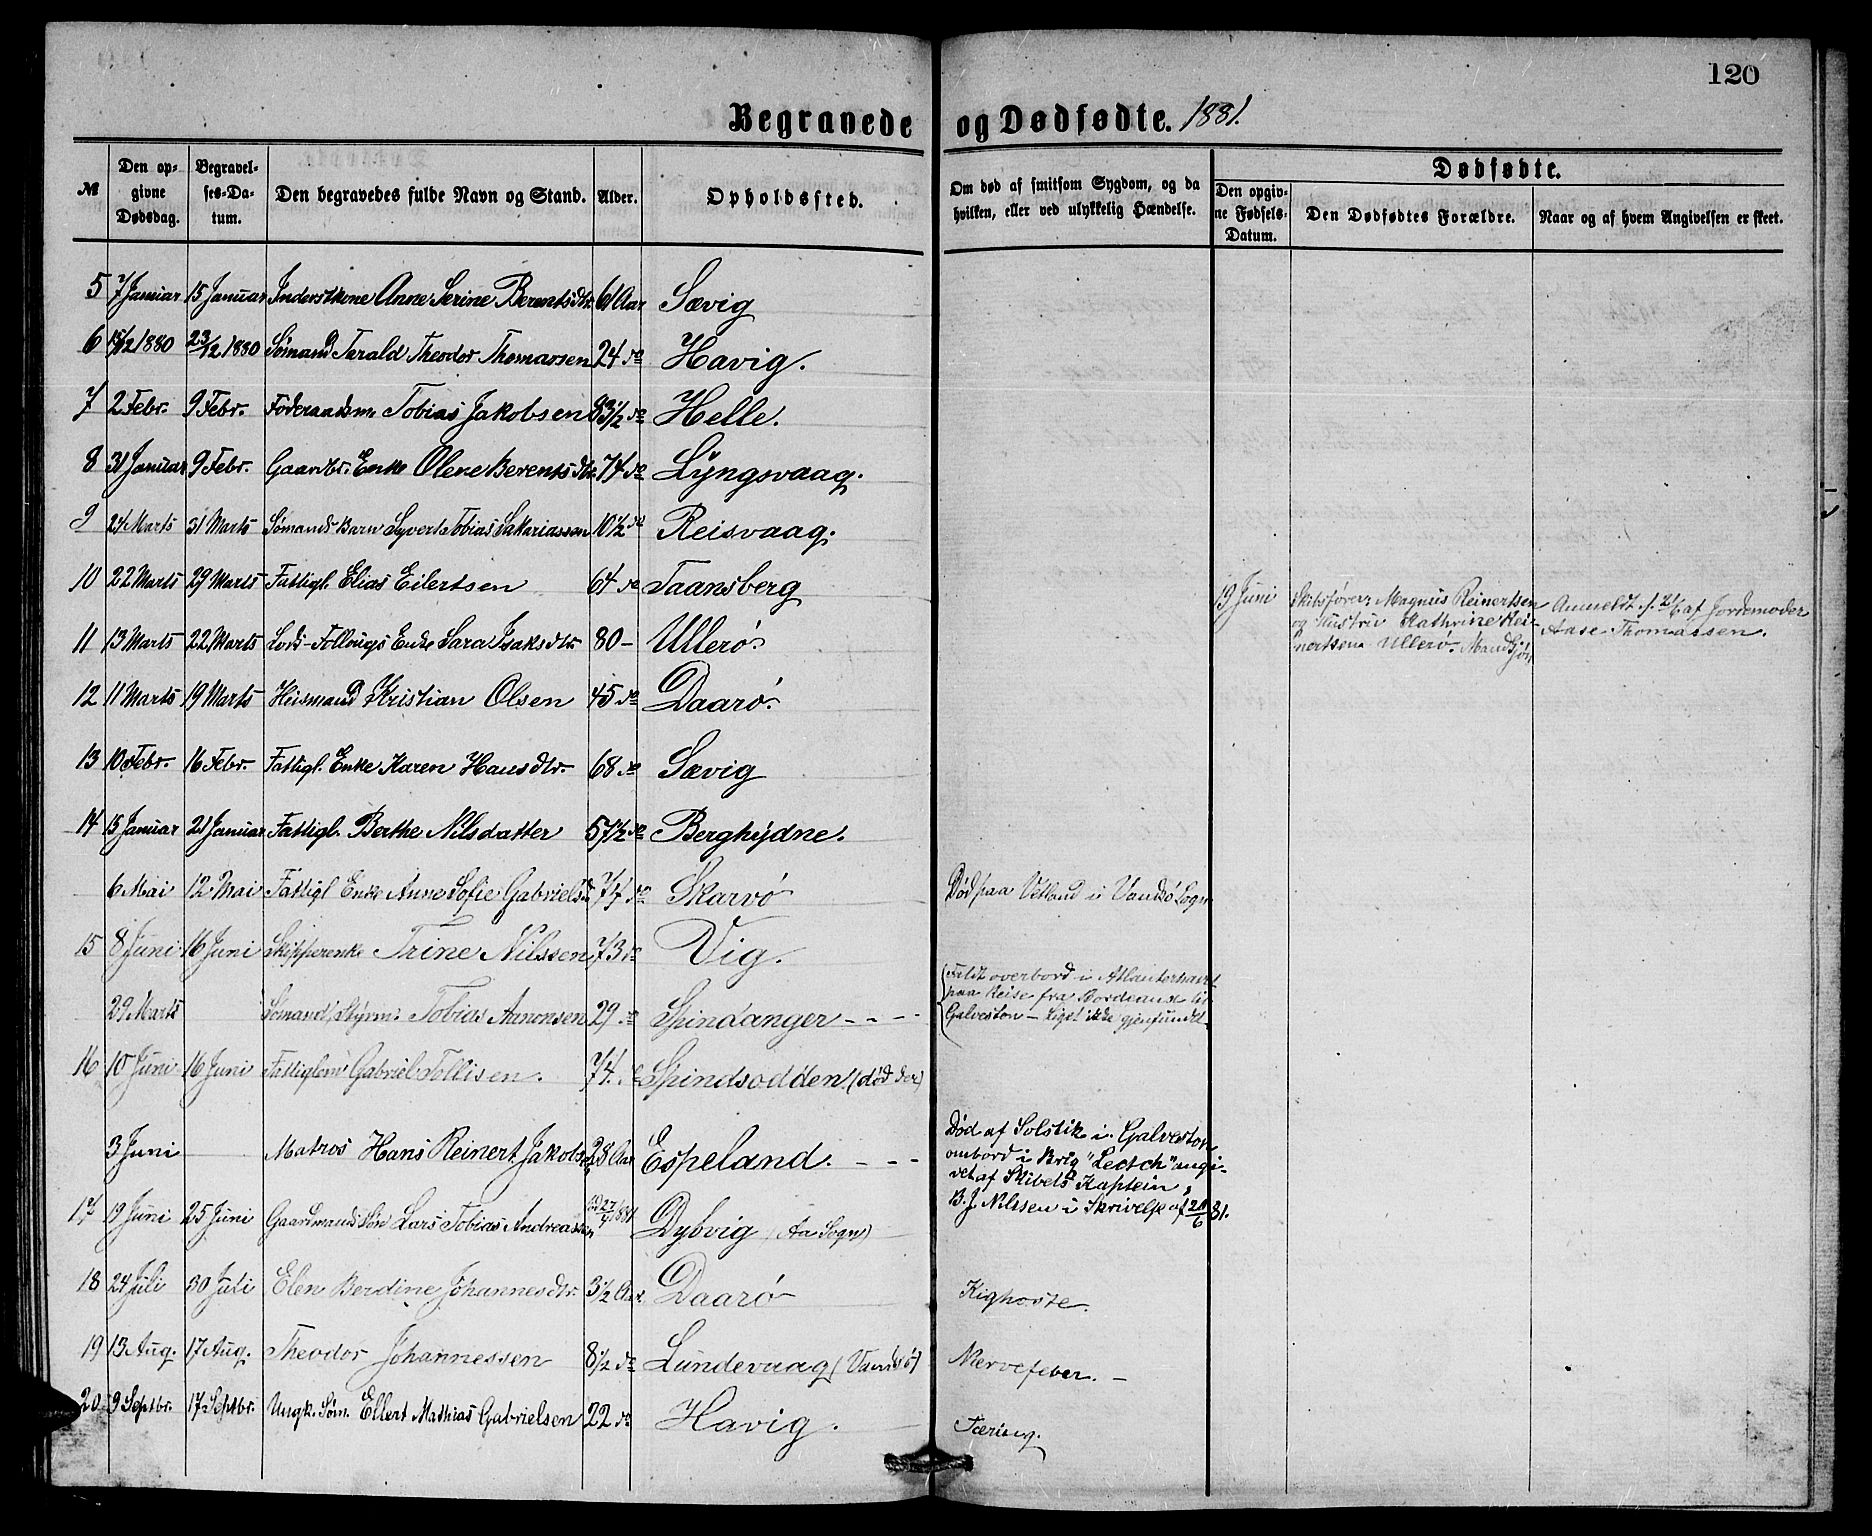 120
Begravede og Dødfødte. 1881.
№ Den opgivne Dødsdag. Begravelses-Datum. Den begravedes fulde Navn og Stand. Alder. Opholdssted. Om død af smitsom Sygdom, og da hvilken, eller ved ulykkelig Hændelse. Dødfødte. Den opgivne Fødsels-Datum. Den Dødfødtes Forældre. Naar og af hvem Angivelsen er skeet.
5 7 Januar 15 Januar Inderstkone Anne Serine Berentsdtr. 61 Aar Sævig
6 15/12 1880 23/12 1880 Sømand Tarald Theodor Thomassen 24 do Havig.
7 2 Febr. 9 Febr. Føderaadsm. Tobias Jakobsen 83½ do Helle.
8 31 Januar 9 Febr. Gaardbr. Enke Olene Berentsdtr. 74 do Lyngsvaag.
9 24 Marts 31 Marts Sømands Barn Syvert Tobias Sakariassen 10½ do Reisvaag.
10 22 Marts 29 Marts Fattigl. Elias Eilertsen 64 do Taansberg
19 Juni Skibsfører Magnus Reinertsen
og Hustru Kathrine Rei-
nertsen Ullerø. Mandkjøn
Anmeldt d. 21/6 af Jordemoder
Aase Thomassen.
11 13 Marts 22 Marts Lods-Follougs Enke Sara Isaksdtr. 80 – Ullerø.
12 11 Marts 19 Marts Huusmand Kristian Olsen 45 do Daarø.
13 10 Febr. 16 Febr. Fattigl. Enke Karen Hansdtr. 68 do Sævig
14 15 Januar 21 Januar Fattigl. Berthe Nilsdatter 57½ do Berghydne.
6 Mai 12 Mai Fattigl Enke Anne Sofie Gabrielsd 77 do Skarvø Død paa Vetland i Vandsø Sogn
15 8 Juni 16 Juni Skipperenke Trine Nilssen 73 do Vig.
29 Marts Sømand, Styrm. Tobias Aanonsen 29 do Spindanger - - - -
Faldt overbord i Atlanterhavet
paa Reise fra Bordeaux til
Galveston – Liget ikke gjenfundet
16 10 Juni 16 Juni Fattiglem Gabriel Tollisen. 74. do Spindsodden (død der)
3 Juni Matros Hans Reinert Jakobsen 28 Aar Espeland. - - -
Død af Solstik i Galveston
ombord i Brig "Leetch" angi-
vet af Skibets Kaptein,
B. J. Nilssen i Skrivelse af 21/6 81.
17 19 Juni 25 Juni Gaardmands Søn Lars Tobias Andreassen fød 27/4 1881 Dybvig (Aa Sogn)
18 24 Juli 30 Juli Elen Berdine Johannesdtr. 3½ Aar Daarø Kighoste.
19 13 Aug. 17 Aug. Theodor Johannessen 8½ do Lundevaag (Vandsø) Nervefeber. –
20 9 Septbr. 17 Septbr. Ungk. Søm. Ellert Mathias Gabrielsen 22 do Havig. Tæring.